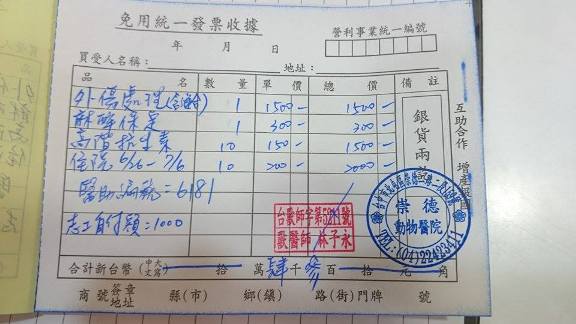 免用統一發票收據
營利事業統一編號
年 月 日
買受人名稱： 地址：
品 名 數量 單價 總價 備註
外傷處理 1 1500- 1500-
1 300- 300-
高階抗生素 10 150- 1500-
住院6/26-7/6 10 200- 2000-
銀貨兩
互助合作 增產報國
醫助病統=6181
志工自付額：1000
台獸師字第 號
獸醫師 林子永
崇德
動物醫院
TEL:(04)22423411
合計新台幣（中文大寫） 拾 萬肆千參百 拾 元 角
商號 簽章地址 縣(市) 鄉(鎮) 路(街)門牌 號